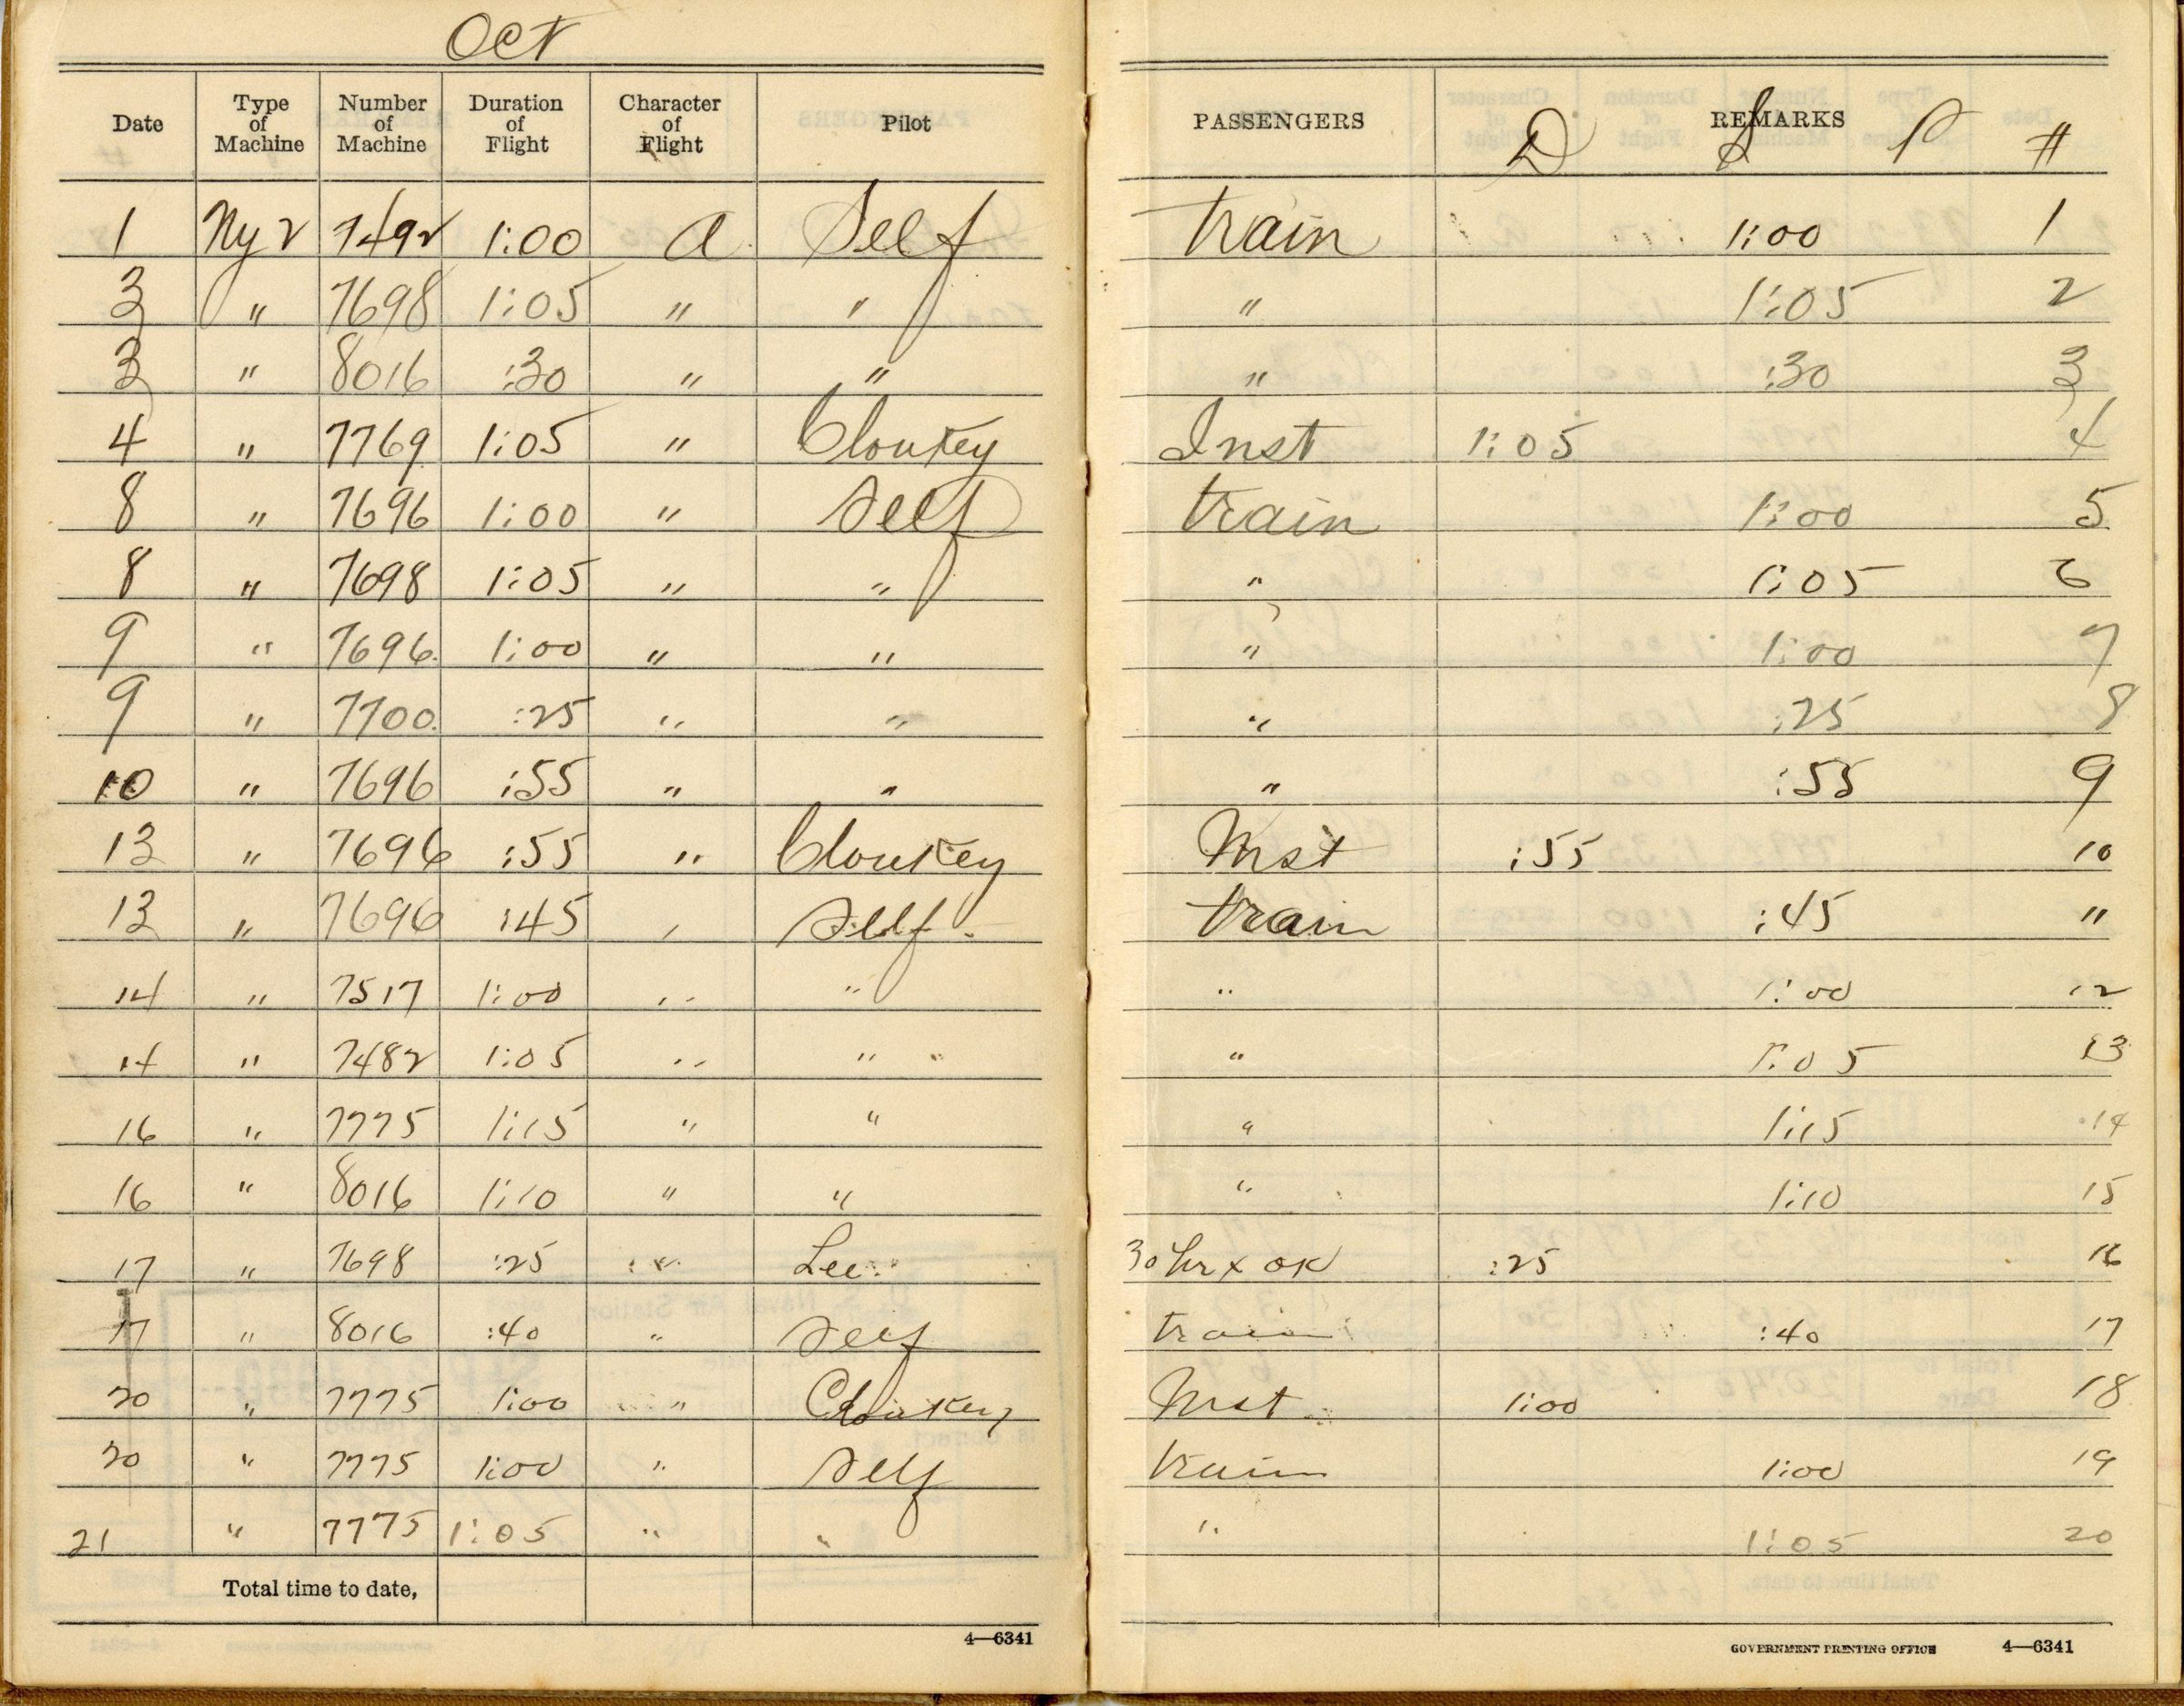 Oct
Date Type of Machine Number of Machine Duration of Flight Character of Flight Pilot PASSENGERS REMARKS D S P #
1 Ny2 7492 1:00 A Self train 1:00 1
3 " 7698 1:05 " " " 1:05 2
3 " 8016 :30 " " " :30 3
4 " 7769 1:05 " Cloukey Inst 1:05 4
8 " 7696 1:00 " Self train 1:00 5
8 " 7698 1:05 " " " 1:05 6
9 " 7696 1:00 " " " 1:00 7
9 " 7700 :25 " " " :25 8
10 " 7696 :55 " " " :55 9
13 " 7696 :55 " Cloukey Inst :55 10
13 " 7696 :45 " Self train :45 11
14 " 7517 1:00 " " " 1:00 12
14 " 7482 1:05 " " " 1:05 13
16 " 7775 1:15 " " " 1:15 14
16 " 8016 1:10 " " " 1:10 15
17 " 7698 :25 " Lee 30 hr x OK :25 16
17 " 8016 :40 " Self train :40 17
20 " 7775 1:00 " Cloukey Inst 1:00 18
20 " 7775 1:00 " Self train 1:00 19
21 " 7775 1:05 " " " 1:05 20
Total time to date,
4—6341
GOVERNMENT PRINTING OFFICE 4—6341